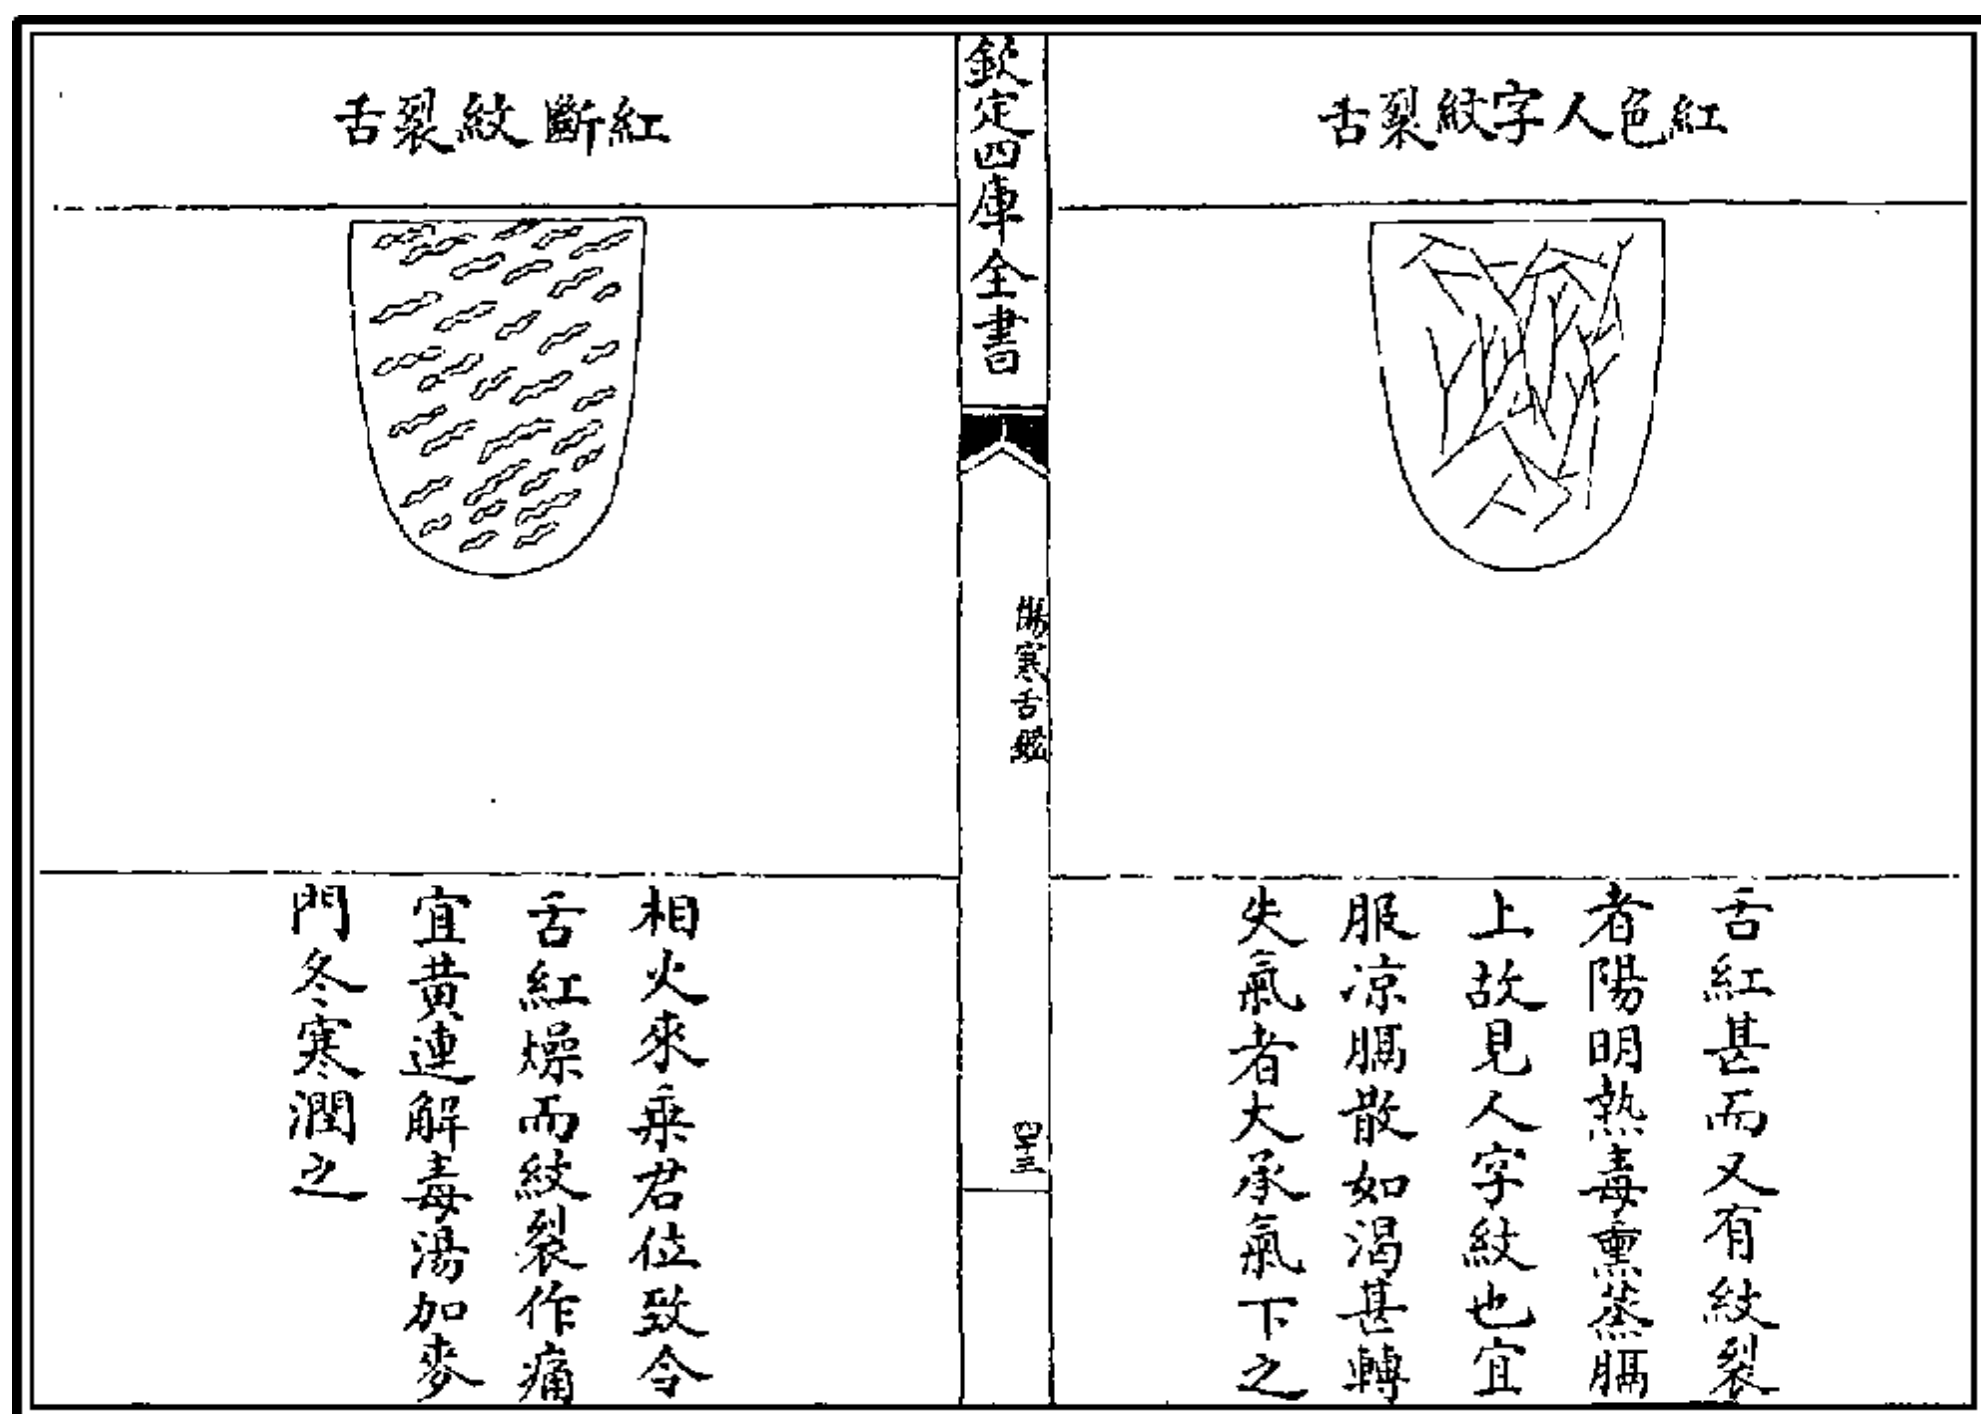 紅色人字紋裂舌
舌紅甚而又有紋裂
者陽明熱毒熏蒸膈
上故見人字紋也宜
服凉膈散如渴甚轉
失氣者大承氣下之
欽定四庫全書
傷寒舌鑑
四十三
紅斷紋裂舌
相火來乗君位致令
舌紅燥而紋裂作痛
宜黄連解毒湯加麥
門冬寒潤之